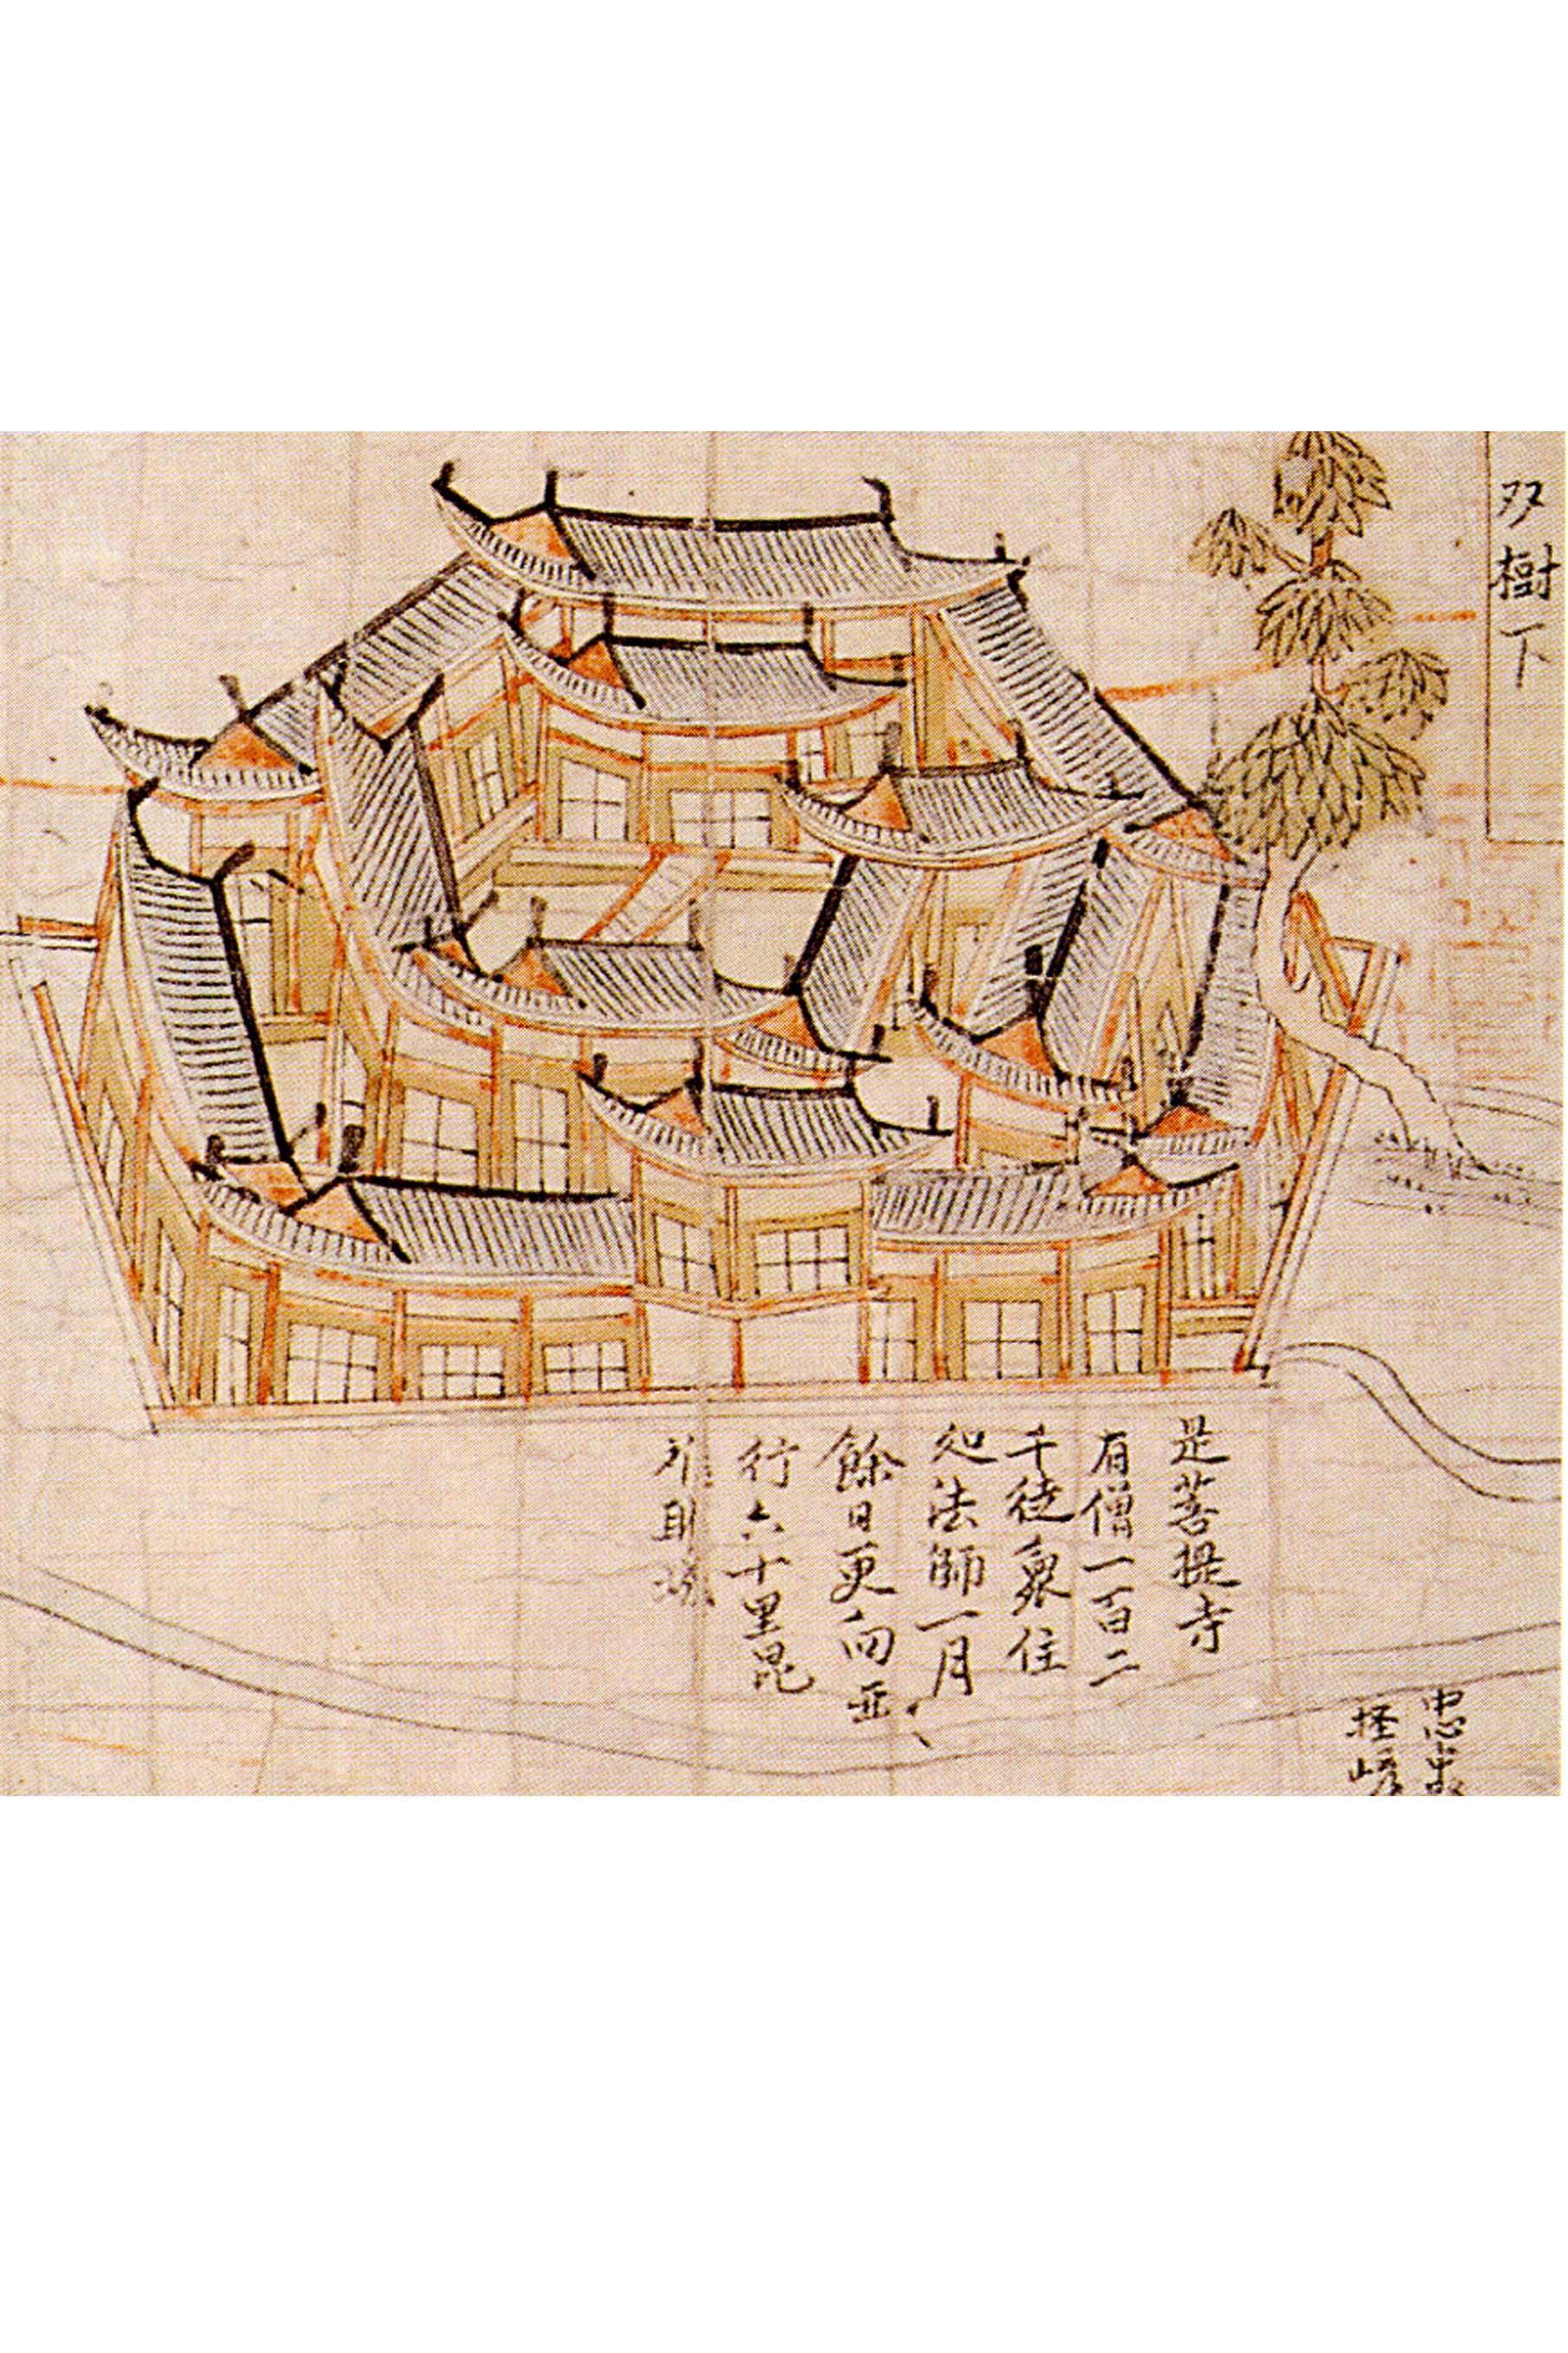 双樹下
是菩提寺
有僧一百二
千徒衆住
処法師一月
餘日更向西
行六十里昆
城
忠